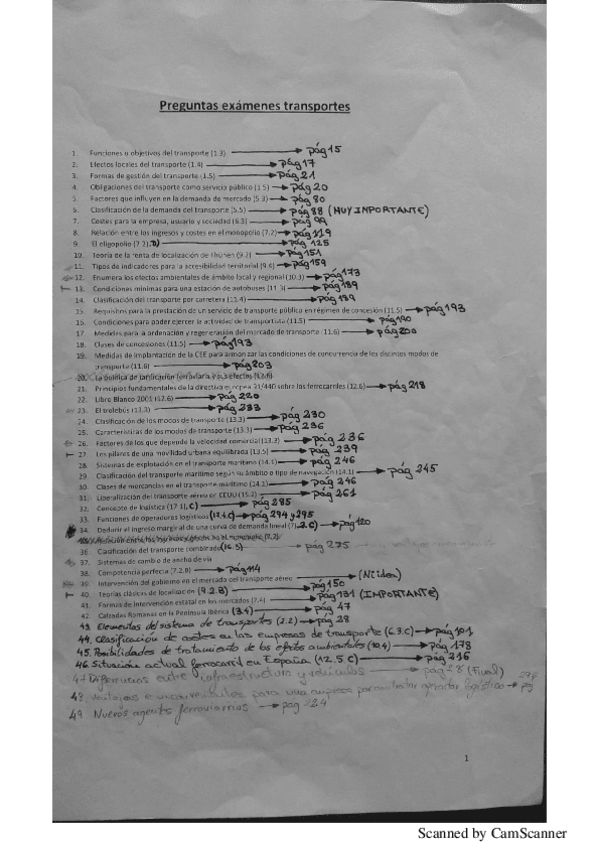 Preguntas exámenes transportes
1. Funciones u objetivos del transporte (1.3) → pág 15
2. Efectos locales del transporte (1.4) → pág 17
3. Formas de gestión del transporte (1.5) → pág 21
4. Obligaciones del transporte como servicio público (1.5) → pág 20
5. Factores que influyen en la demanda de mercado (5.3) → pág 80
6. Clasificación de la demanda del transporte (5.5) → pág 88 (MUY IMPORTANTE)
7. Costes para la empresa, usuario y sociedad (6.3) → pág 99
8. Relación entre los ingresos y costes en el monopolio (7.2) → pág 119
9. El oligopolio (7.2) → pág 125
10. Teoría de la renta de localización de Thünen (9.2) → pág 151
11. Tipos de indicadores para la accesibilidad territorial (9.4) → pág 159
12. Enumera los efectos ambientales de ámbito local y regional (10.3) → pág 173
13. Condiciones mínimas para una estación de autobuses (11.3) → pág 189
14. Clasificación del transporte por carretera (11.4) → pág 189
15. Requisitos para la prestación de un servicio de transporte público en régimen de concesión (11.5) → pág 193
16. Condiciones para poder ejercer la actividad de transportista (11.5) → pág 190
17. Medidas para la ordenación y regeneración del mercado de transporte (11.6) → pág 200
18. Clases de concesiones (11.5) → pág 193
19. Medidas de implantación de la CEE para armonizar las condiciones de concurrencia de los distintos modos de
transporte (11.6) → pág 203
20. La política de tarificación ferroviaria y sus efectos
21. Principios fundamentales de la directiva europea 91/440 sobre los ferrocarriles (12.6) → pág 218
22. Libro Blanco 2001 (12.6) → pág 220
23. El trolebús (13.3) → pág 233
24. Clasificación de los modos de transporte (13.3) → pág 230
25. Características de los modos de transporte (13.3) → pág 236
26. Factores de los que depende la velocidad comercial (13.3) → pág 236
27. Los pilares de una movilidad urbana equilibrada (13.5) → pág 239
28. Sistemas de explotación en el transporte marítimo (14.1) → pág 246
29. Clasificación del transporte marítimo según su ámbito o tipo de navegación (14.1) → pág 245
30. Clases de mercancías en el transporte marítimo (14.1) → pág 246
31. Liberalización del transporte aéreo en EEUU (15.2) → pág 261
32. Concepto de logística (17.1).C) → pág 285
33. Funciones de operadores logísticos (17.4.C) → pág 294 y 295
34. Deducir el ingreso marginal de una curva de demanda lineal (7).2.C) → pág 120
36. Clasificación del transporte combinado (16.3) → pág 275
37. Sistemas de cambio de ancho de vía
38. Competencia perfecta (7.2.B) → pág 114
39. Intervención del gobierno en el mercado del transporte aéreo →
40. Teorías clásicas de localización (9.2.B) → pág 150
41. Formas de intervención estatal en los mercados (7.4) → pág 131 (IMPORTANTE)
42. Calzadas Romanas en la Península Ibérica (3.4) → pág 47
43. Elementos del sistema de transportes (2.2) → pág 28
44. Clasificación de costes en las empresas de transporte (6.3.C) → pág 101
45. Posibilidades de tratamiento de los efectos ambientales (10.4) → pág 178
46. Situación actual ferrocarril en España (12.5 C) → pág 216
47 Diferencias entre infraestructura y vehículos → pág 28 (Final)
48 Ventajas e inconvenientes para una empresa por contratar operador logístico → pág
49 Nuevos agentes ferroviarios → pág
1
Scanned by CamScanner